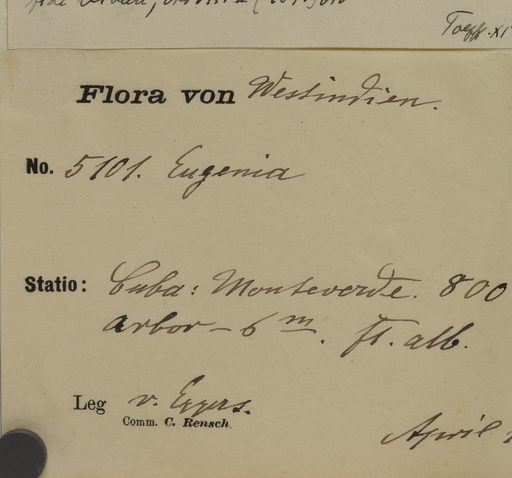 Toepff. XI
Flora von Westindien.
No. 5101. Eugenia
Statio: Cuba: Monteverde. 800
arbor - 6 m. fl. alb.
Leg v. Eggers.
Comm. C. Rensch.
April